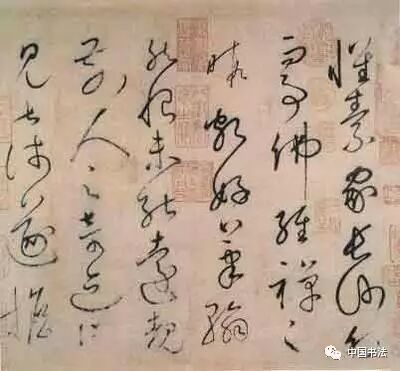 懷素家長沙幼而
事佛經禪之
暇頗好筆翰
然恨未能遠覩
前人之奇迹所
見甚淺遂擔
中国书法